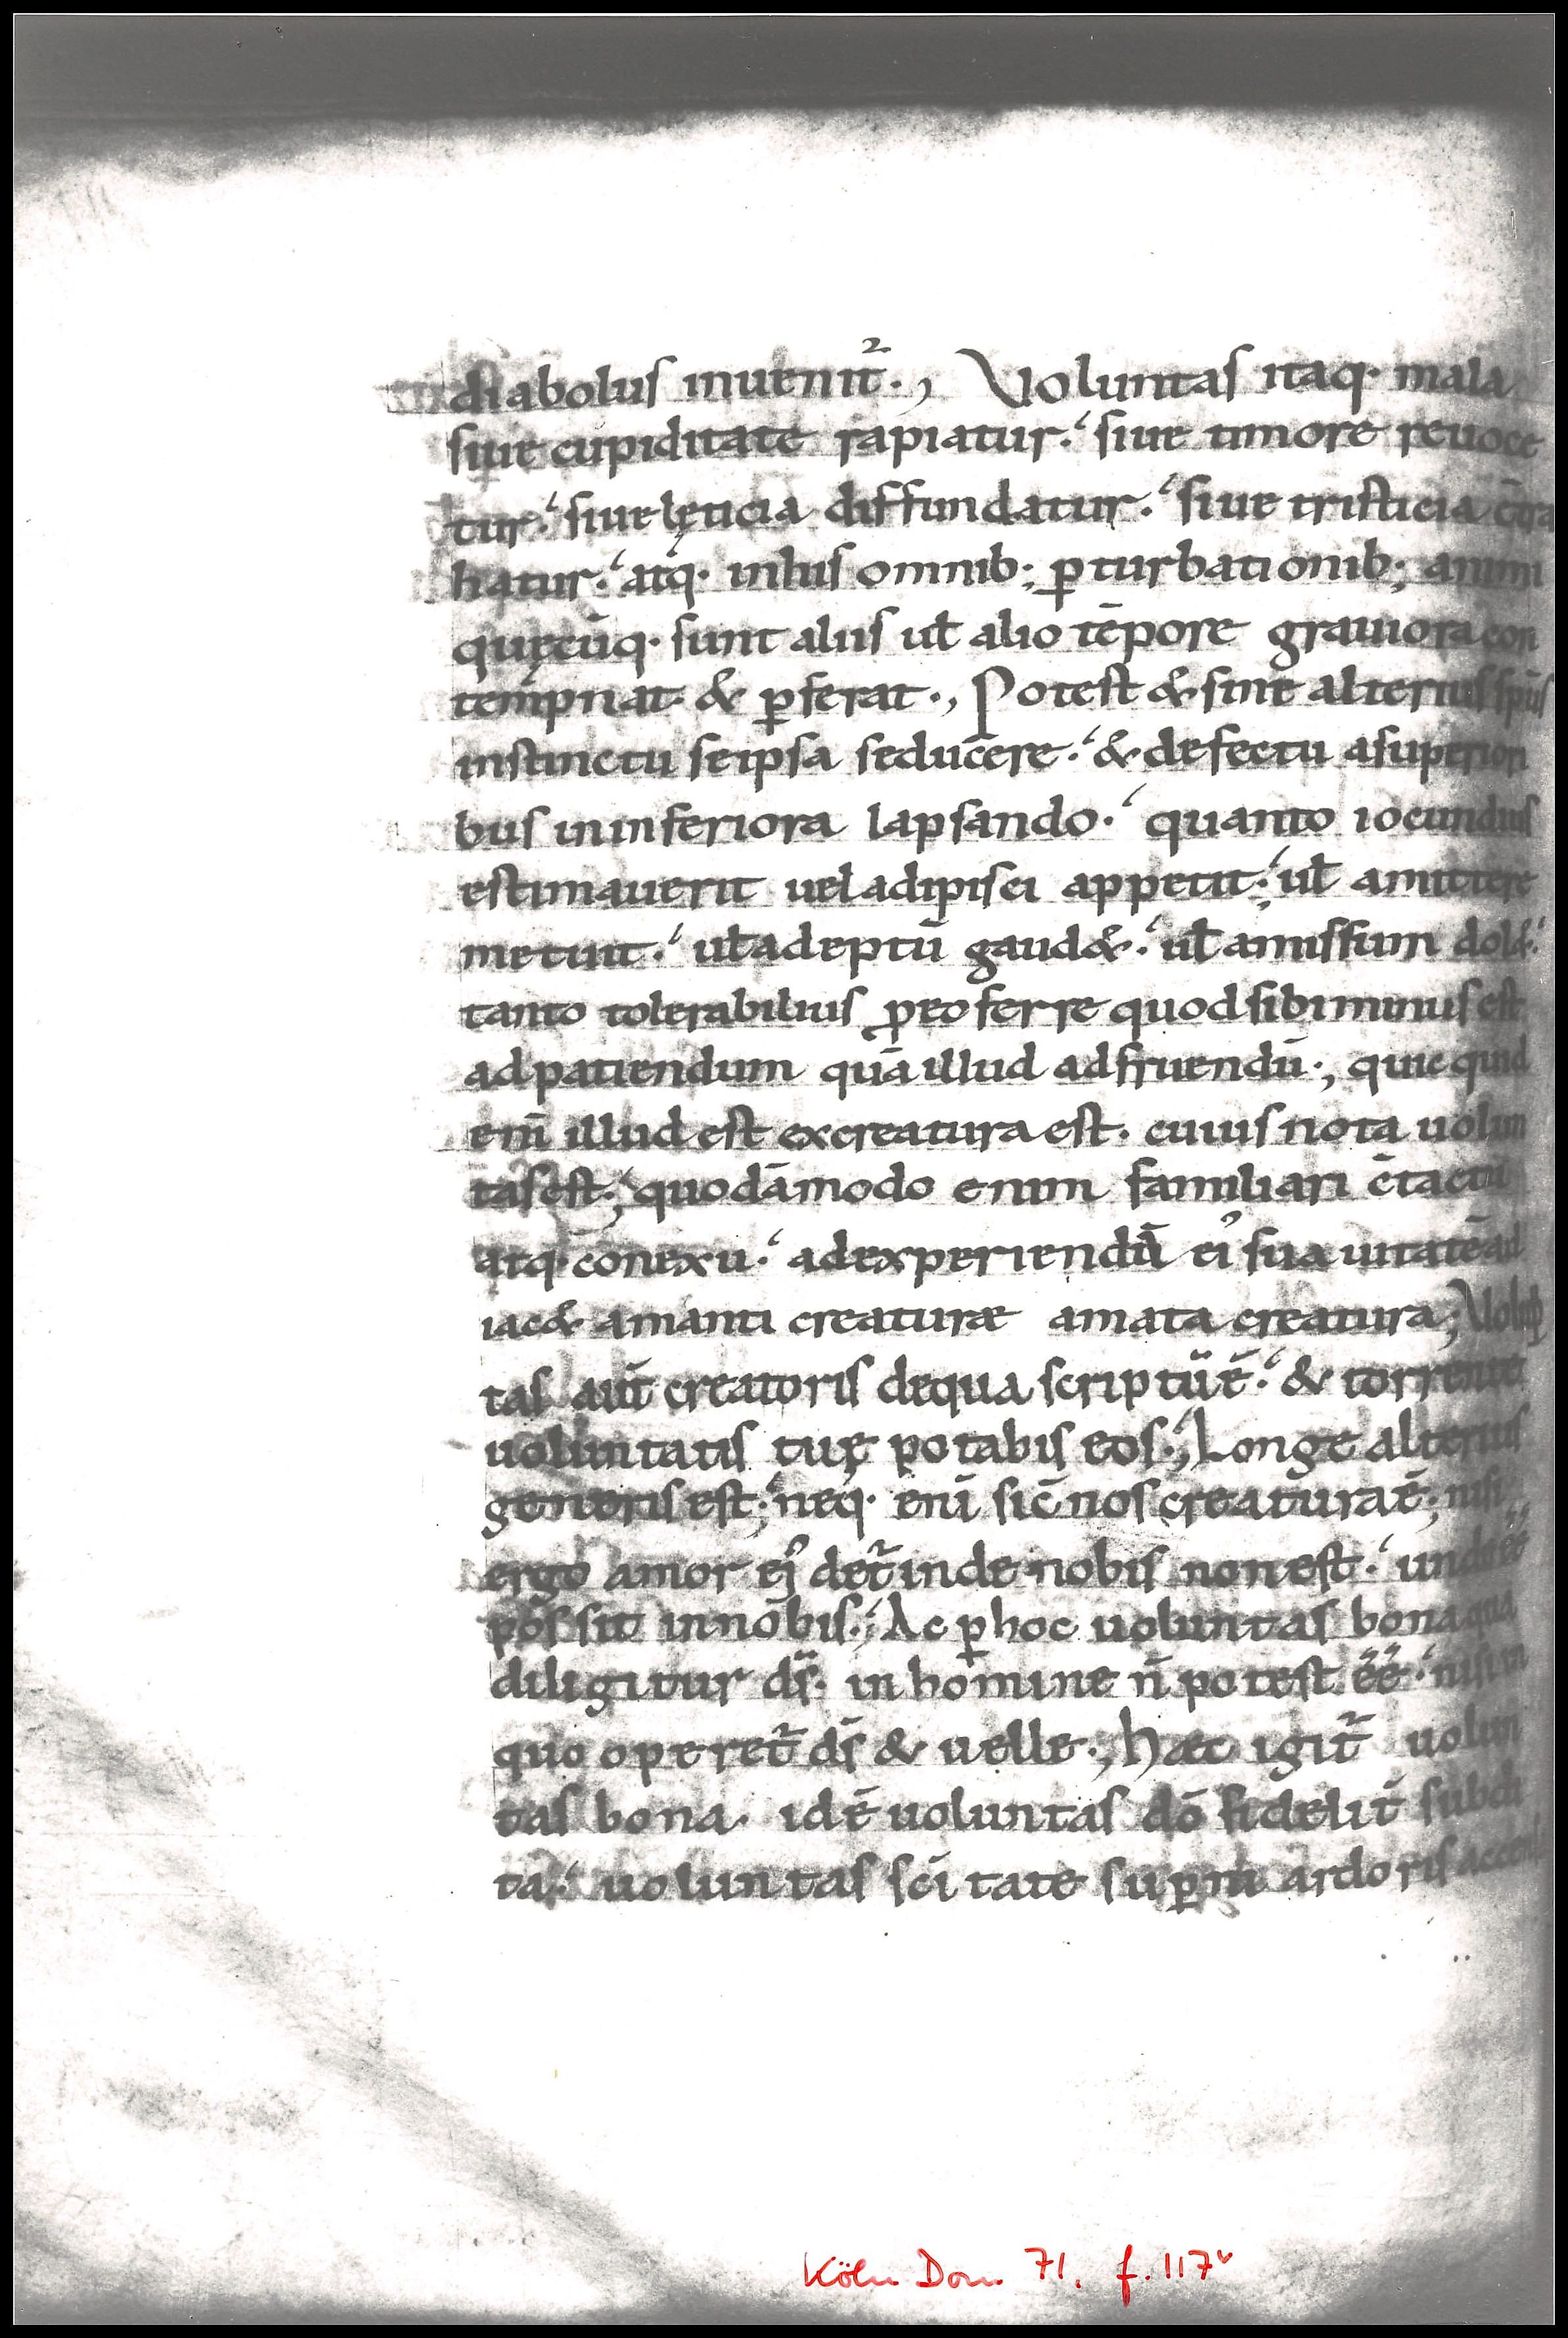 diabolus inuenit᷑·, Voluntas itaq· mala
siue cupiditate rapiatur· siue timore reuoce
tur· siue lęticia diffundatur· siue tristicia c̄tra
hatur· atq· inhis omnib; ꝑturbationib; animi
quęcūq· sunt aliis ul̄ alio tēpore grauiora con
tempnat & ꝑferat·, Potest & sine alterius sp̄us
instinctu seipsa seducere· & defectu asuperiori
bus ininferiora lapsando· quanto iocundius
estimauerit uel adipisci appetit· ul̄ amittere
metuit· ul̄ adeptū gaud&· ul̄ amissum dol&·
tanto tolerabilius proferre quod sibi minus est
ad patiendum quā illud ad fruendū·, quicquid
eni̅ illud est ex creatura est· cuius nota uolun
tas est·, quodāmodo enim familiari c̄tactu
atq· conexu· ad experiendū ei᾿ suauitatē ad
iac& amanti creaturæ amata creatura; Volup
tas aut̄ creatoris dequa scriptū ē· & torrente
uoluntatis tuę potabis eos·, Longe alterius
generis est· neq· eni̅ sic̄ nos creatura ē· nisi
ergo amor ei᾿ det᷑ inde nobis non est· unde ēē
pos sit in nobis·, Ac ꝑ hoc uoluntas bona qua
diligitur ds̄· in homine n̄ potest ēē· nisi in
quo operet᷑ ds̄ & uelle·, hæc igit᷑ uolun
tas bona· id ē uoluntas dō fidelit̄ subdi
ta· uoluntas sc̄itate suꝑni ardoris accens
Köln Dom 71, f. 117ᵛ